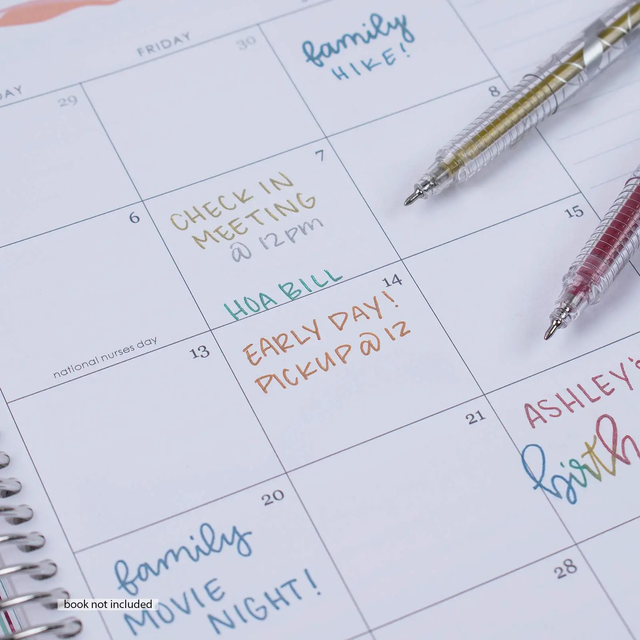 AY
FRIDAY
29
30
family
HIKE!
6
national nurses day
7
CHECK IN
MEETING
@ 12pm
HOA BILL
8
13
14
EARLY DAY!
PICKUP @ 12
15
20
family
MOVIE
NIGHT!
21
ASHLEY'S
birth
28
book not included